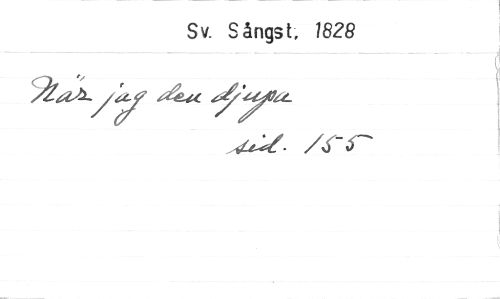 Sv. Sångst, 1828
När jag den djupa
sid. 155